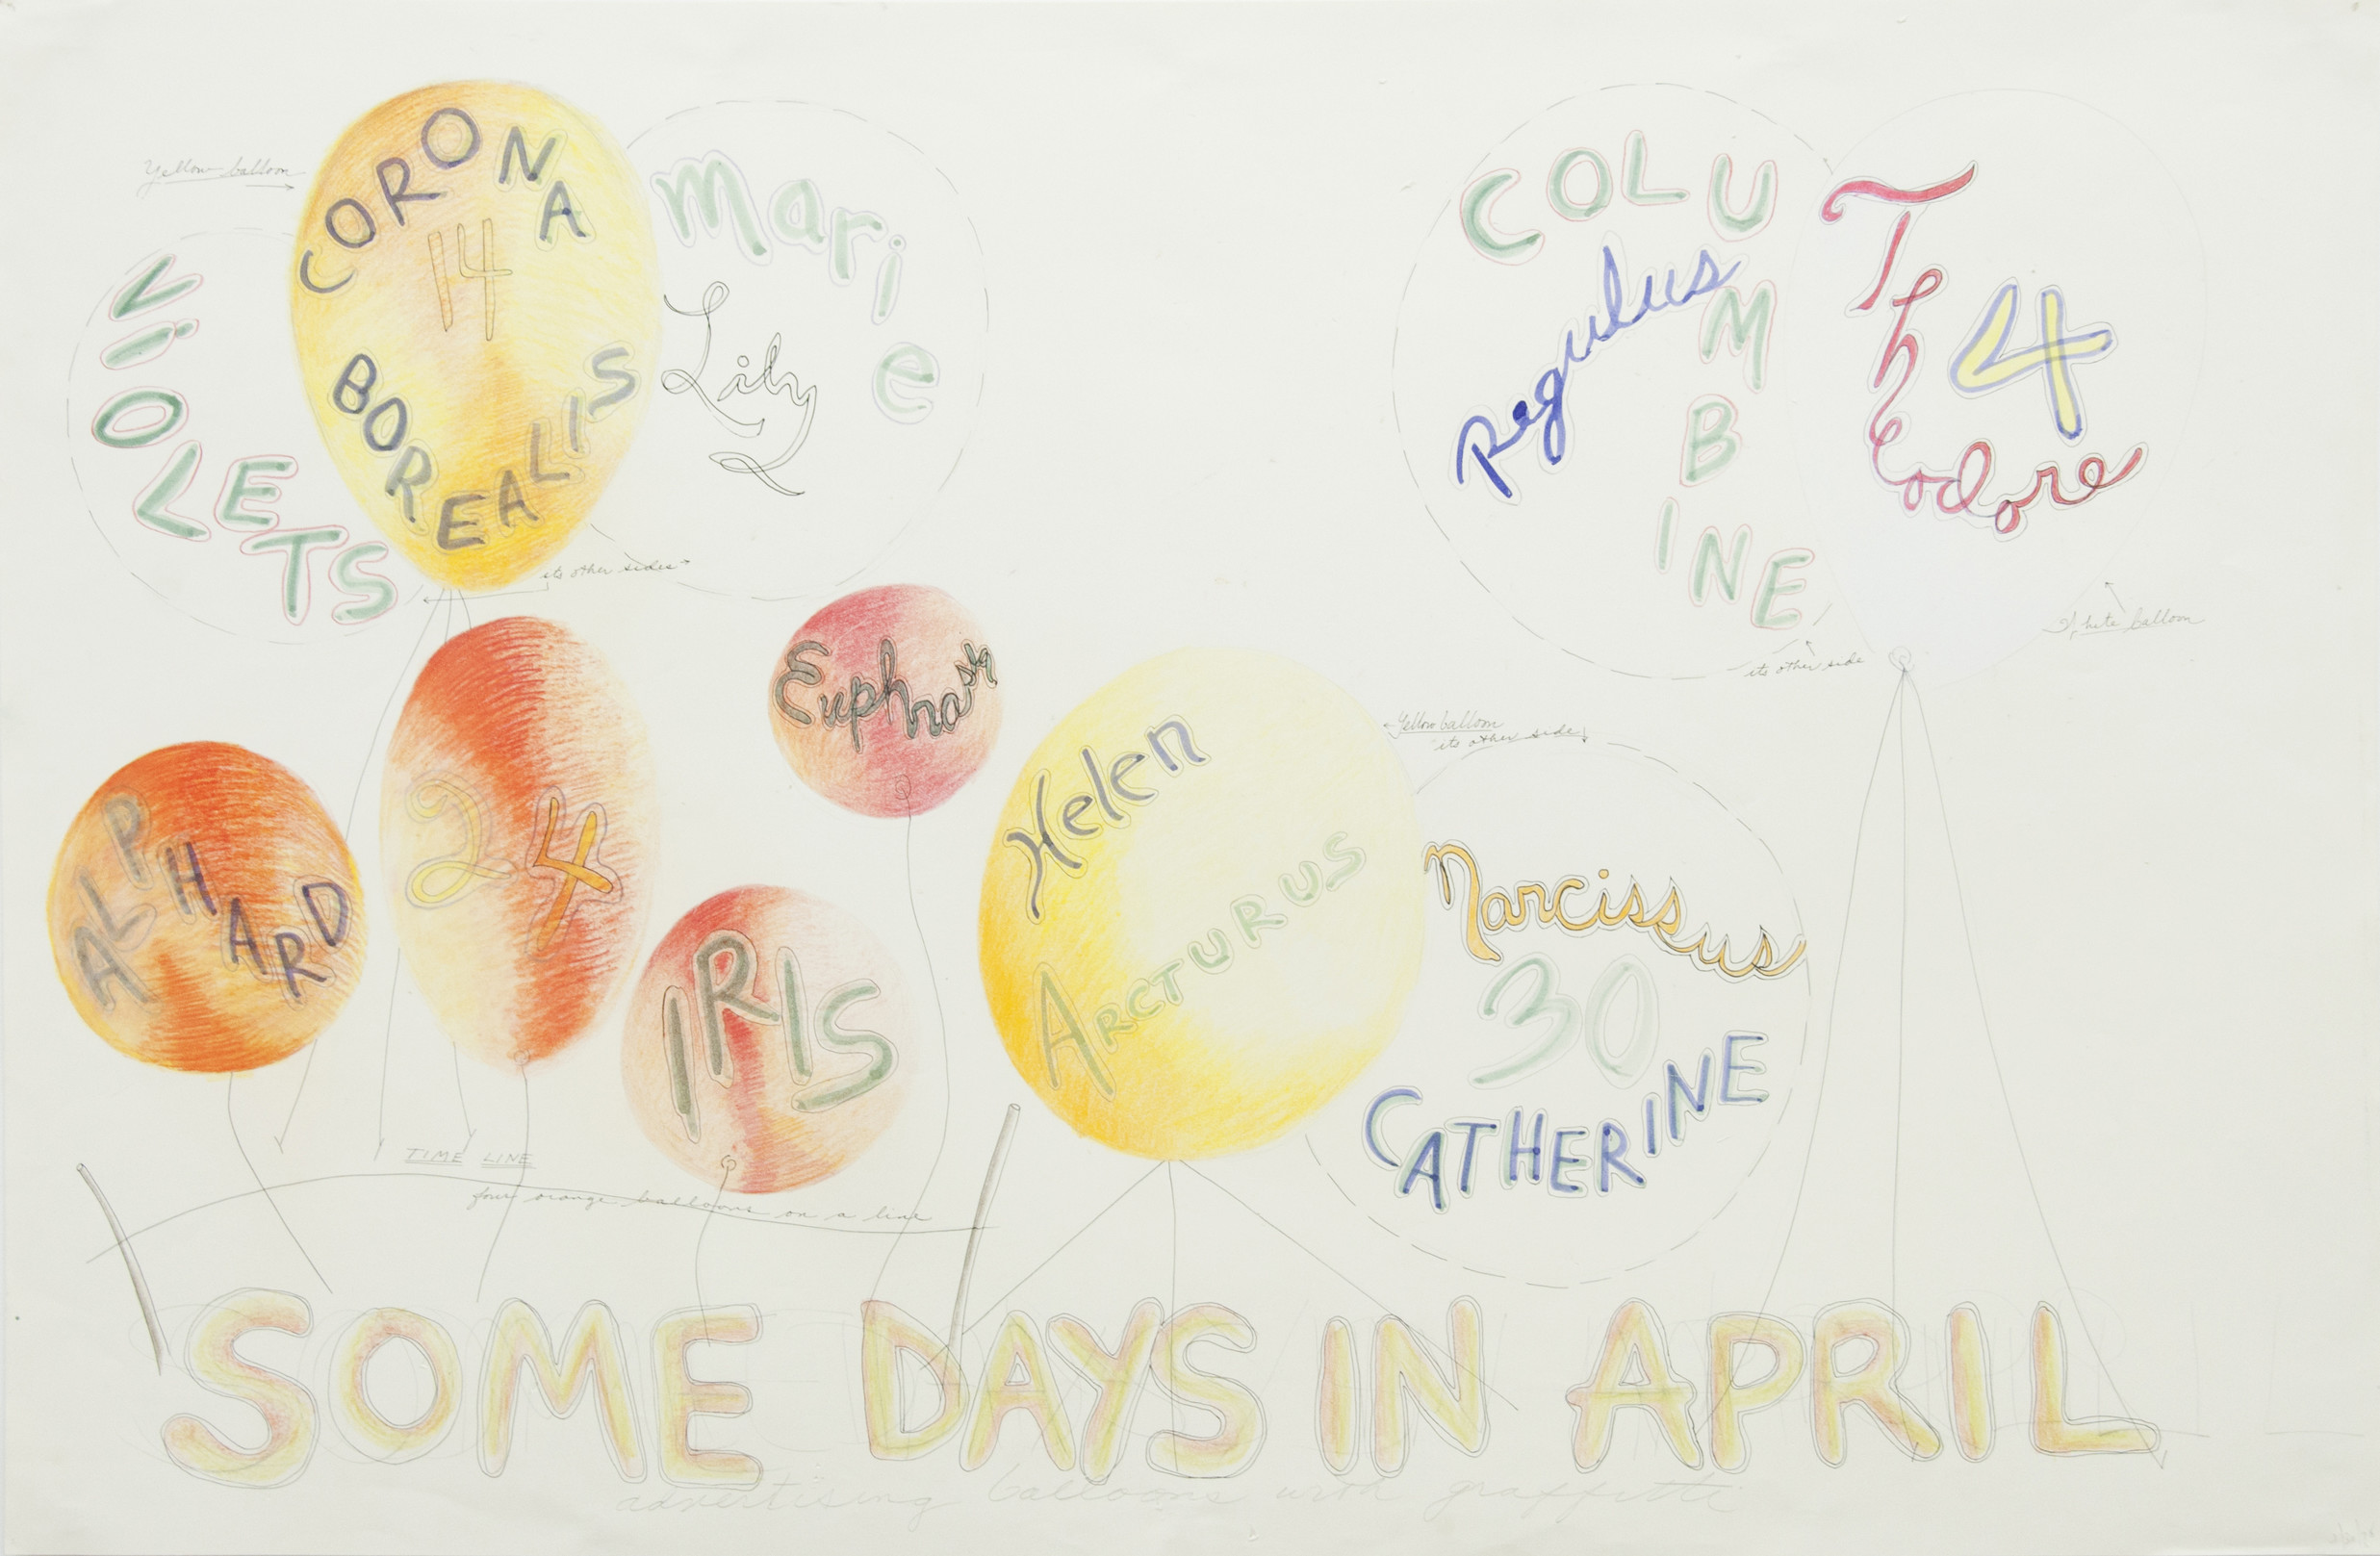 Yellow balloon
CORONA
14
BOREALIS
VIOLETS
Marie
Lily
its other sides
COLUMBINE
Regulus
Theodore
4
White balloon
its other side
ALPHARD
24
Euphrasy
IRIS
Helen
ARCTURUS
Yellow balloon
its other side
Narcissus
30
CATHERINE
TIME LINE
four orange balloons on a line
SOME DAYS IN APRIL
advertising balloons with graffitti